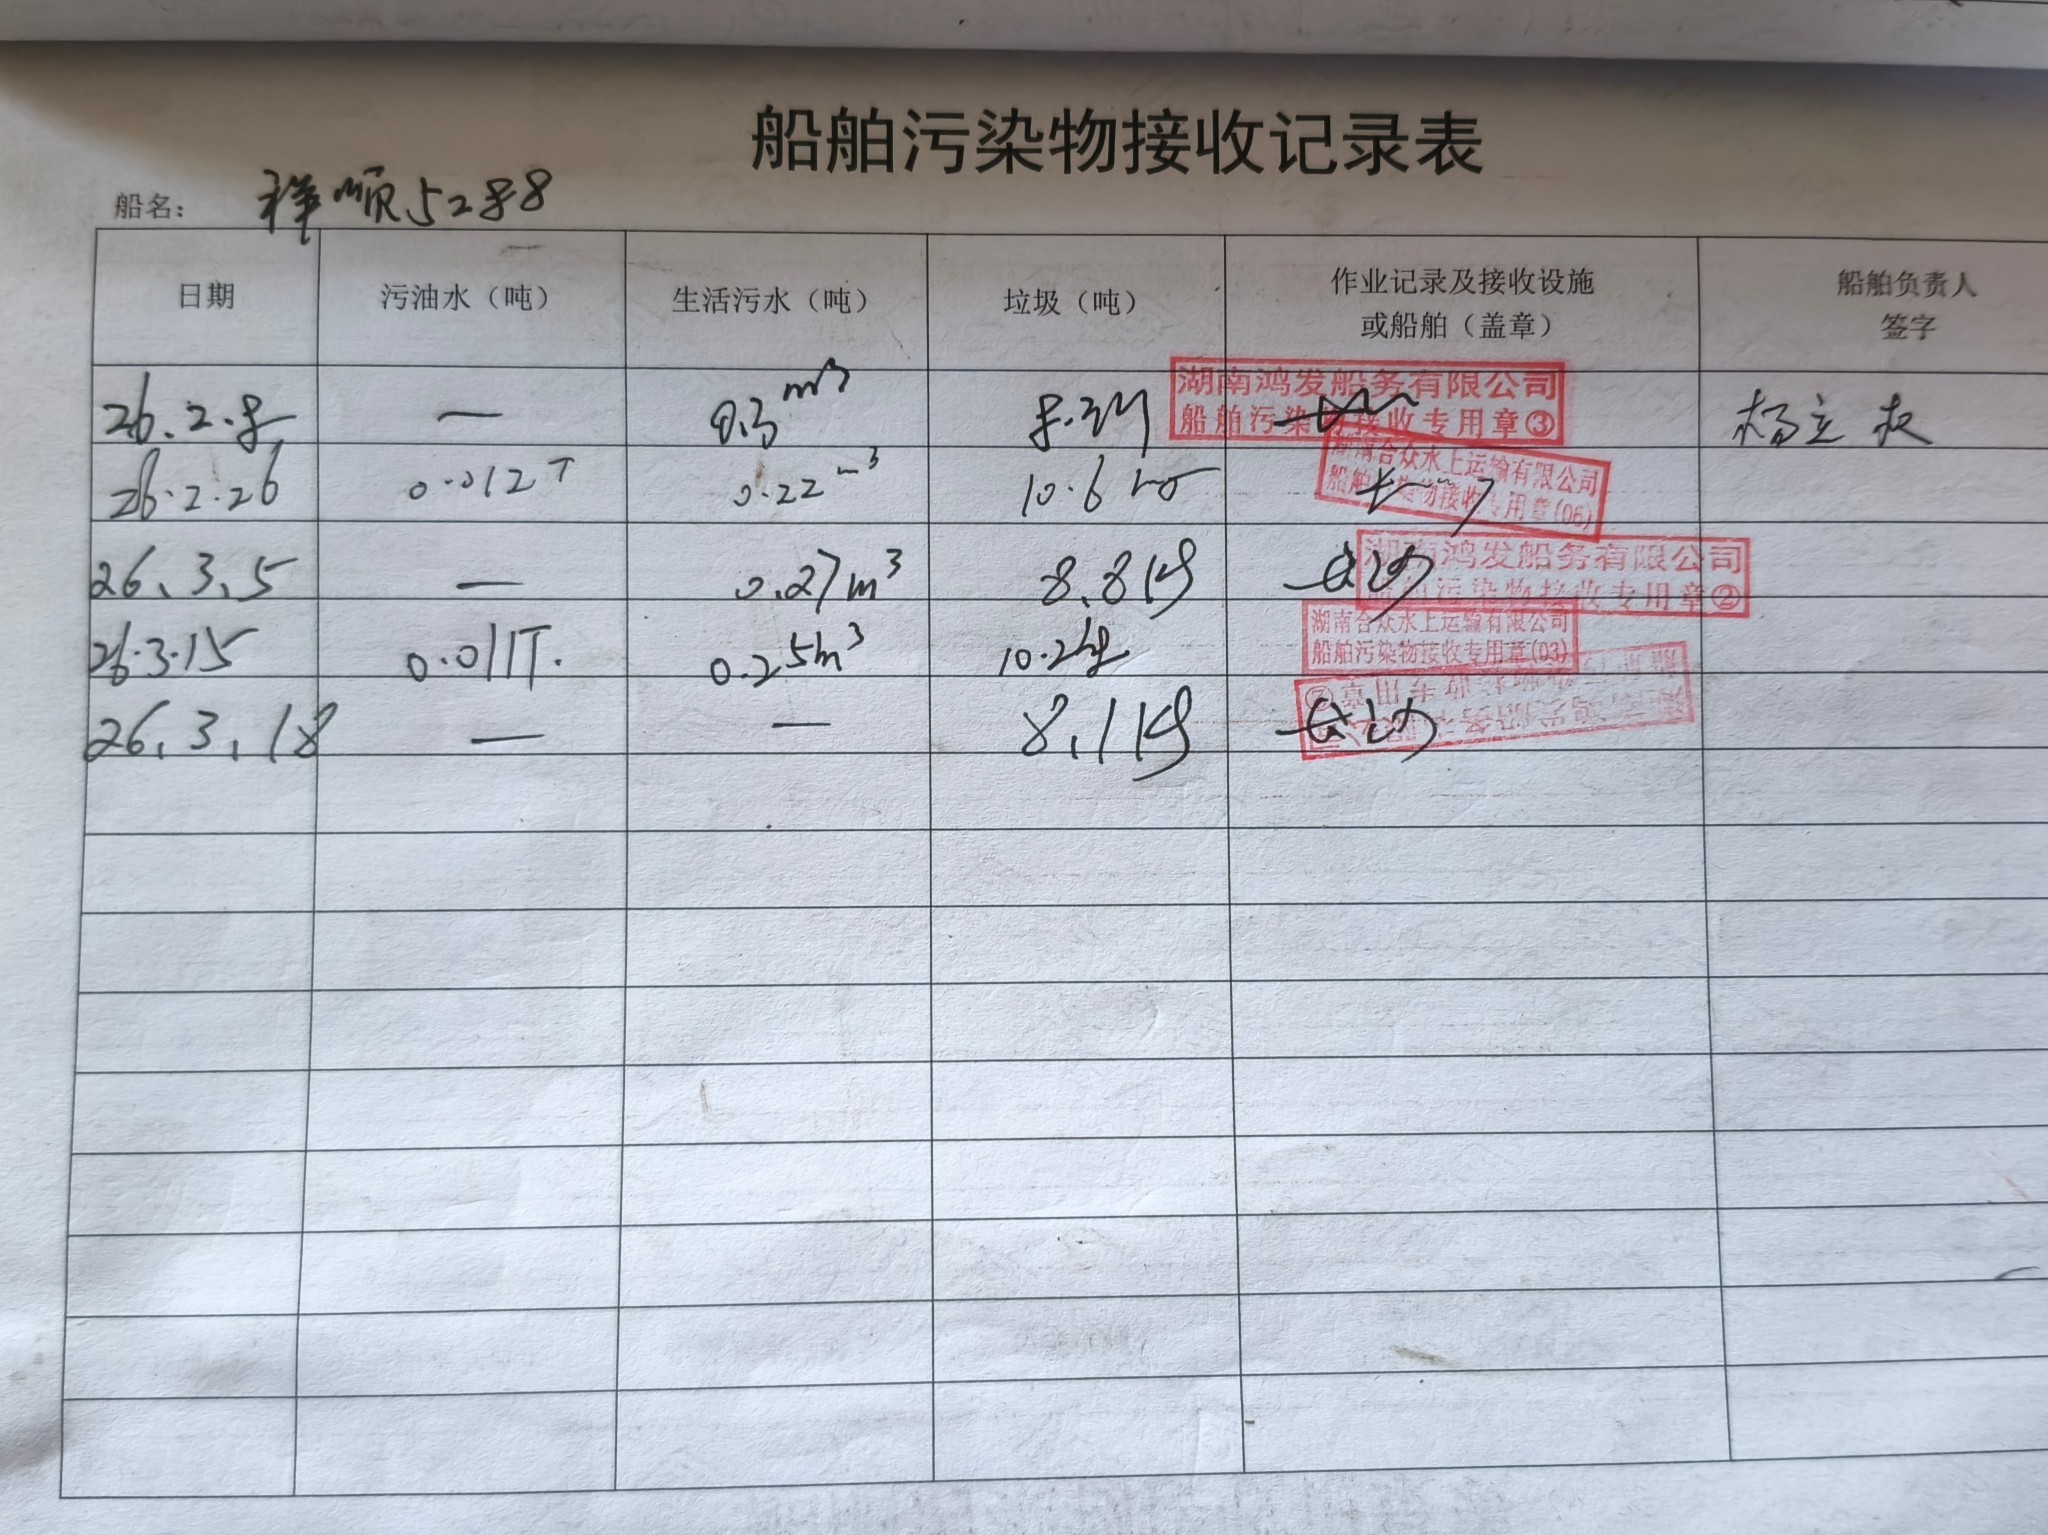 船舶污染物接收记录表
船名： 祥顺5288
日期 污油水（吨） 生活污水（吨） 垃圾（吨） 作业记录及接收设施或船舶（盖章） 船舶负责人签字
26.2.8 — 0.3m³ 湖南鸿发船务有限公司
船舶污染物接收专用章③
26.2.26 0.012T 0.22m³ 10.6 湖南合众水上运输有限公司
船舶污染物接收专用章(06)
26.3.5 — 0.27m³ 8.8kg 长沙 湖南鸿发船务有限公司
船舶污染物接收专用章②
26.3.15 0.011T. 0.25m³ 10.2kg 湖南合众水上运输有限公司
船舶污染物接收专用章(03)
26.3.18 — — 8.1kg 长沙